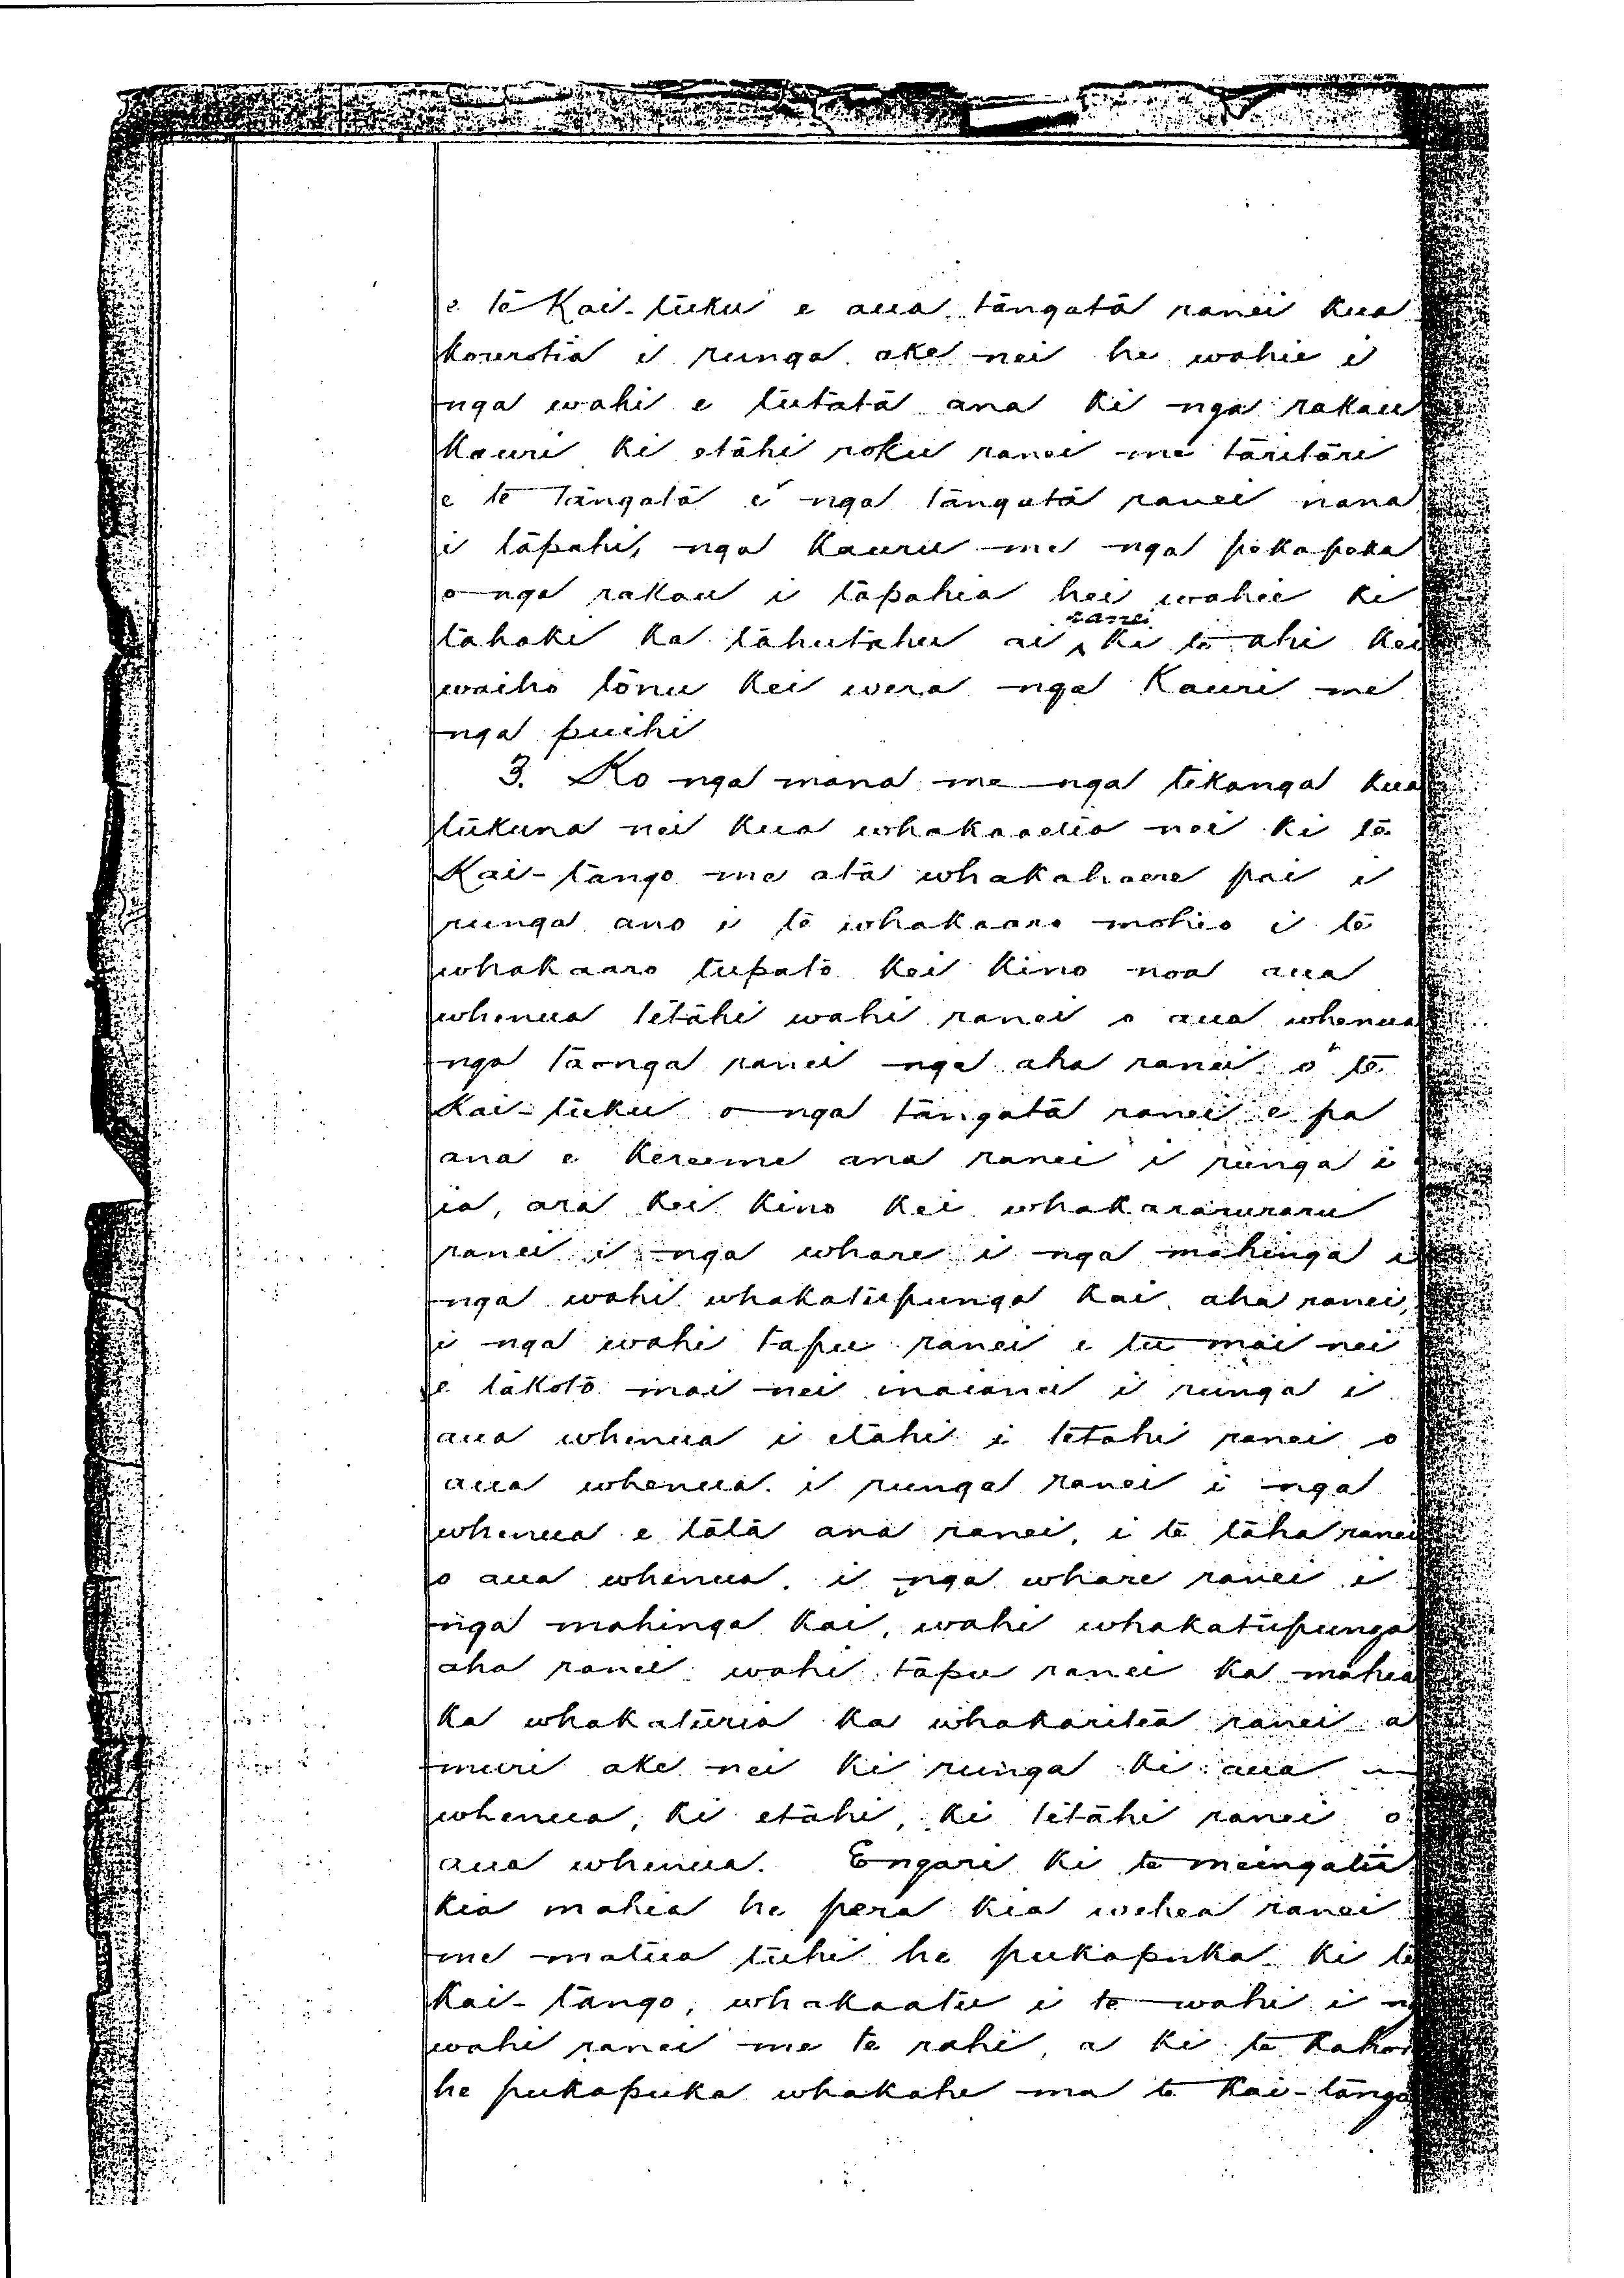 e te Kai-tuku e aua tangata ranei kua
korerotia i runga ake nei he wahie i
nga wahi e tutata ana ki nga rakau
kauri ki etahi roku ranei me taritari
e te tangata e nga tangata ranei nana
i tapahi, nga kauru me nga pokapoka
o nga rakau i tapahia hei wahie ki
tahaki ka tahutahu ai ranei ki te ahi kei
waiho tonu kei wera nga Kauri me
nga puihi
3. Ko nga mana me nga tikanga kua
tukuna nei kua whakaaetia nei ki te
Kai-tango me ata whakahaere pai i
runga ano i te whakaaro mohio i te
whakaaro tupato kei kino noa aua
whenua tetahi wahi ranei o aua whenua
nga taonga ranei nga aha ranei o te
Kai-tuku o nga tangata ranei e pa
ana e kereeme ana ranei i runga i
ia, ara kei kino kei whakararuraru
ranei i nga whare i nga mahinga i
nga wahi whakatupunga kai aha ranei,
i nga wahi tapu ranei e tu mai nei
e takoto mai nei inaianei i runga i
aua whenua i etahi i tetahi ranei o
aua whenua. i runga ranei i nga
whenua e tata ana ranei, i te taha ranei
o aua whenua. i nga whare ranei i
nga mahinga kai, wahi whakatupunga
aha ranei wahi tapu ranei ka mahia
ka whakaturia ka whakaritea ranei a
muri ake nei ki runga ki aua
whenua, ki etahi, ki tetahi ranei o
aua whenua. Engari ki te meingatia
kia mahia he pera kia wehea ranei
me matua tuhi he pukapuka ki te
kai-tango, whakaatu i te wahi i nga
wahi ranei me te rahi, a ki te kahore
he pukapuka whakahe ma te Kai-tango